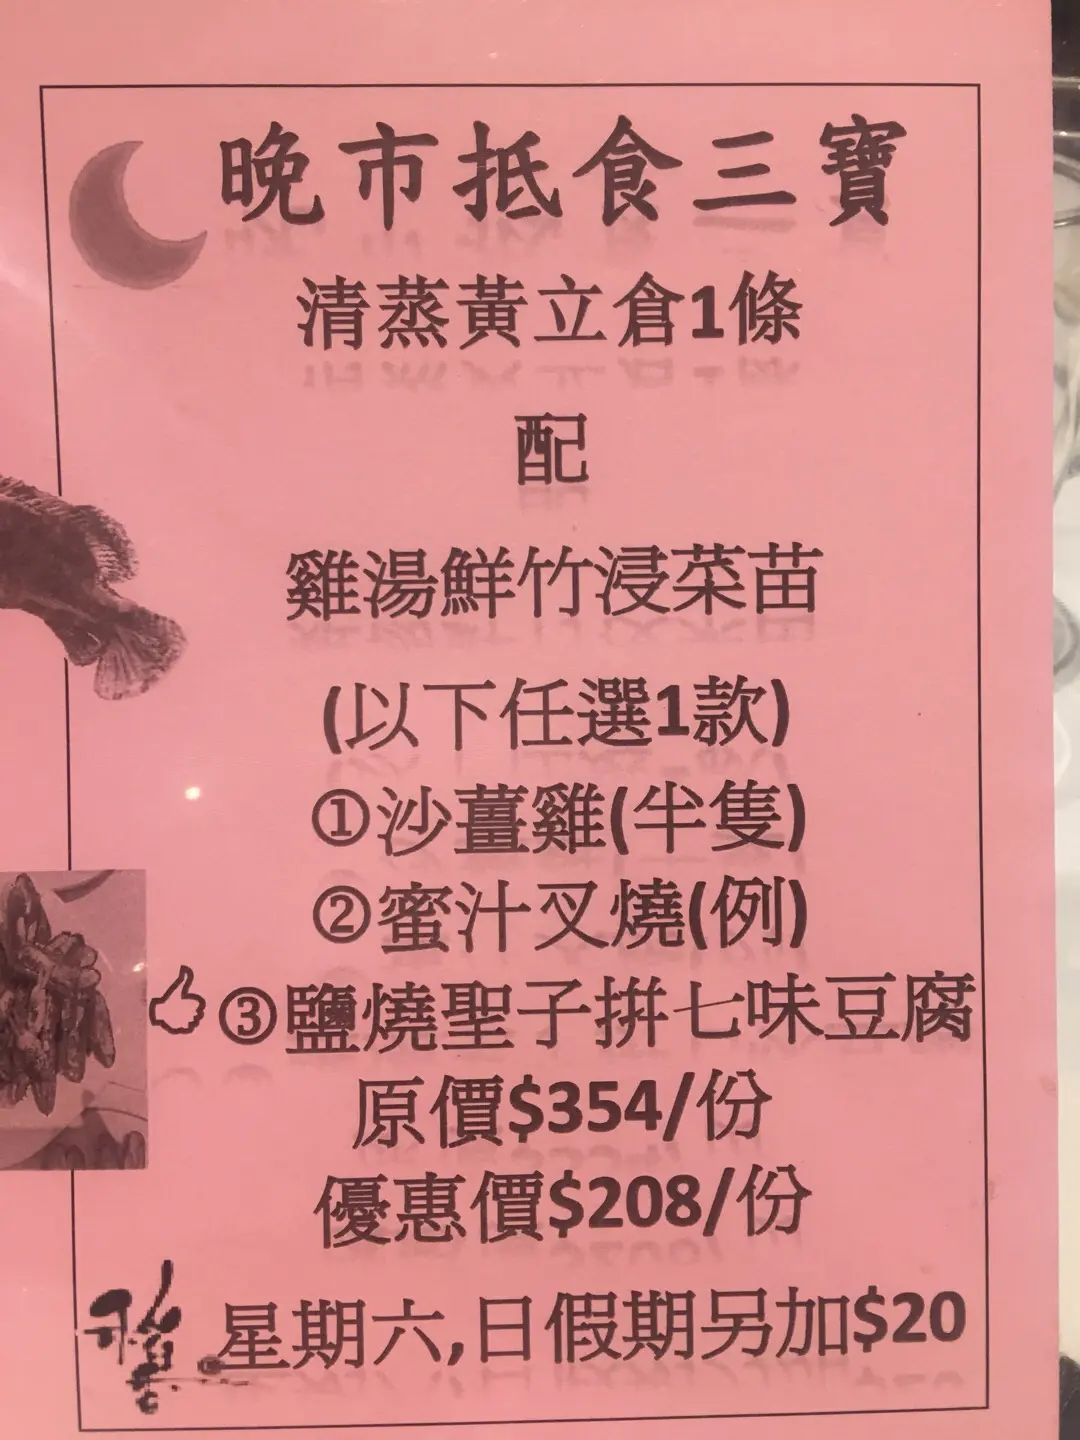 晚市抵食三寶
清蒸黃立倉1條
配
雞湯鮮竹浸菜苗
(以下任選1款)
①沙薑雞(半隻)
②蜜汁叉燒(例)
③鹽燒聖子拼七味豆腐
原價$354/份
優惠價$208/份
星期六,日假期另加$20